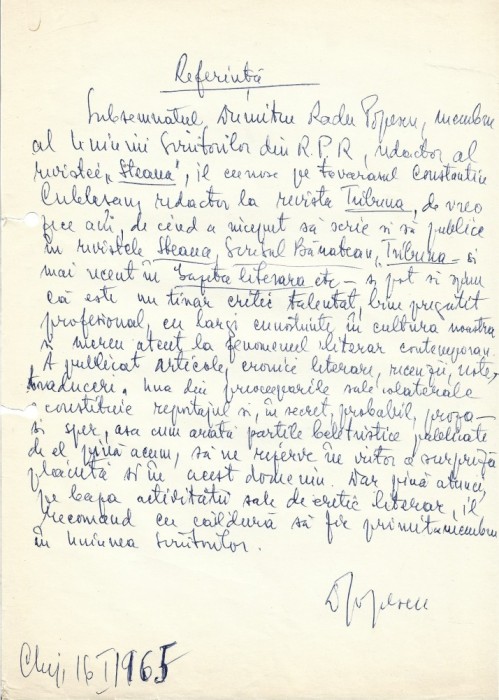 Referință
Subsemnatul, Dumitru Radu Popescu, membru
al Uniunii Scriitorilor din R.P.R, redactor al
revistei „Steaua", îl cunosc pe tovarășul Constantin
Cubleșan, redactor la revista Tribuna, de vreo
zece ani, de cînd a început să scrie și să publice
în revistele Steaua, Scrisul Bănățean, Tribuna – și
mai recent în Gazeta literară etc – și pot să spun
că este un tînăr critic talentat, bine pregătit
profesional, cu largi cunoștințe în cultura noastră
și mereu atent la fenomenul literar contemporan.
A publicat articole, cronici literare, recenzii, note,
traduceri. Una din preocupările sale colaterale
constituie reportajul și, în secret, probabil, proza –
și sper, așa cum arată părțile beletristice publicate
de el pînă acum, să ne rezerve în viitor o surpriză
plăcută și în acest domeniu. Dar pînă atunci,
pe baza activității sale de critic literar, îl
recomand cu căldură să fie primit membru
în Uniunea Scriitorilor.
DPopescu
Cluj, 16 I/1965